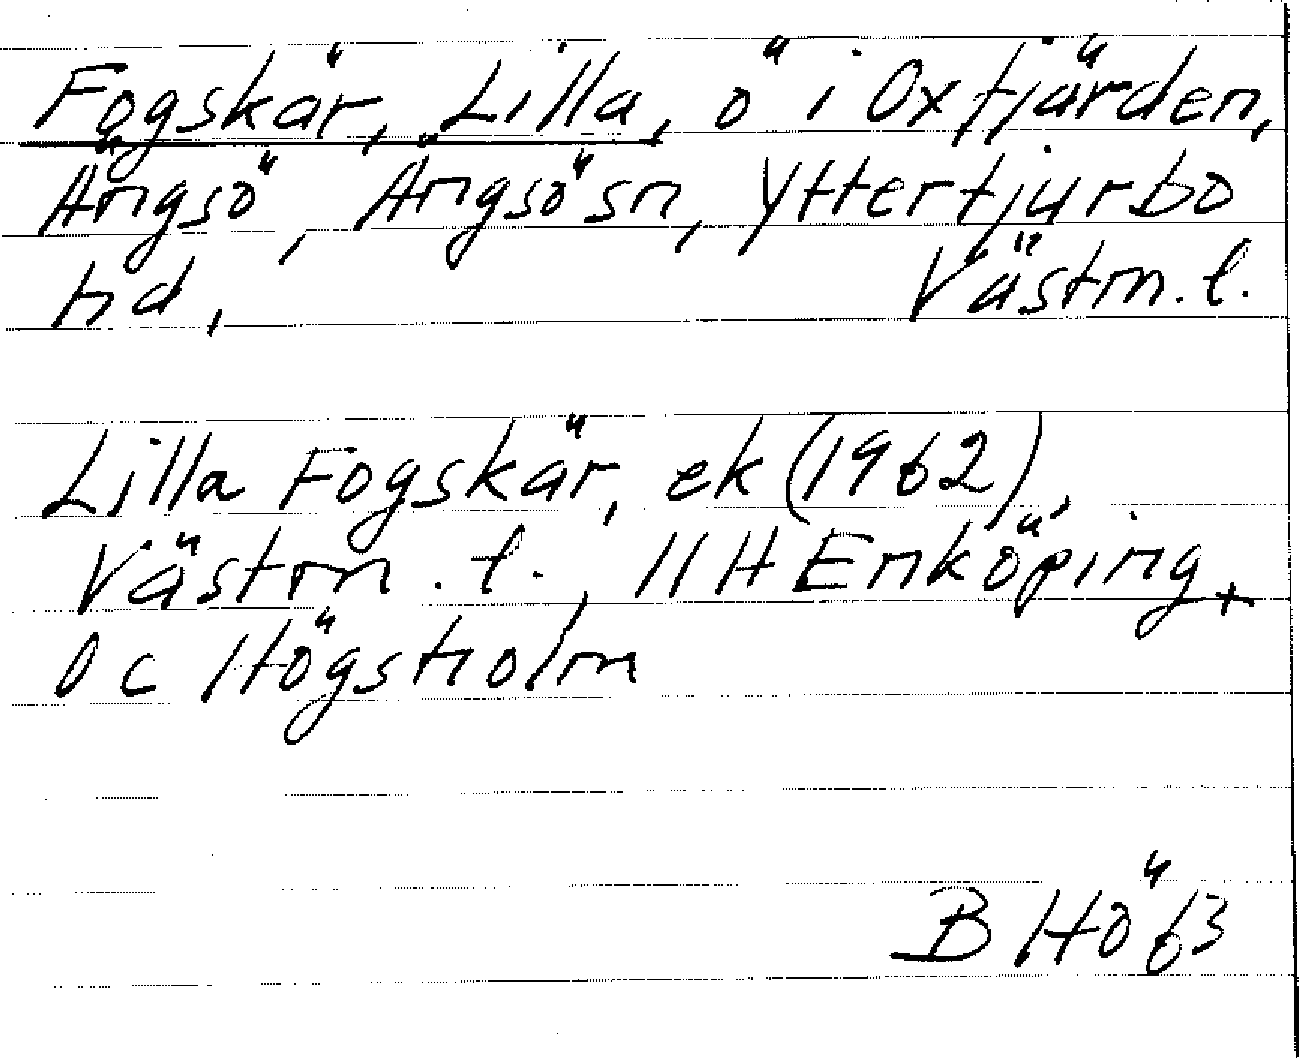 Fogskär, Lilla, ö i Oxfjärden,
Ängsö, Ängsö sn, Yttertjurbo
hd, Västm. l.
Lilla Fogskär, ek (1962),
Västm. l., 11 H Enköping,
0 c Högsholm
B Hö 63